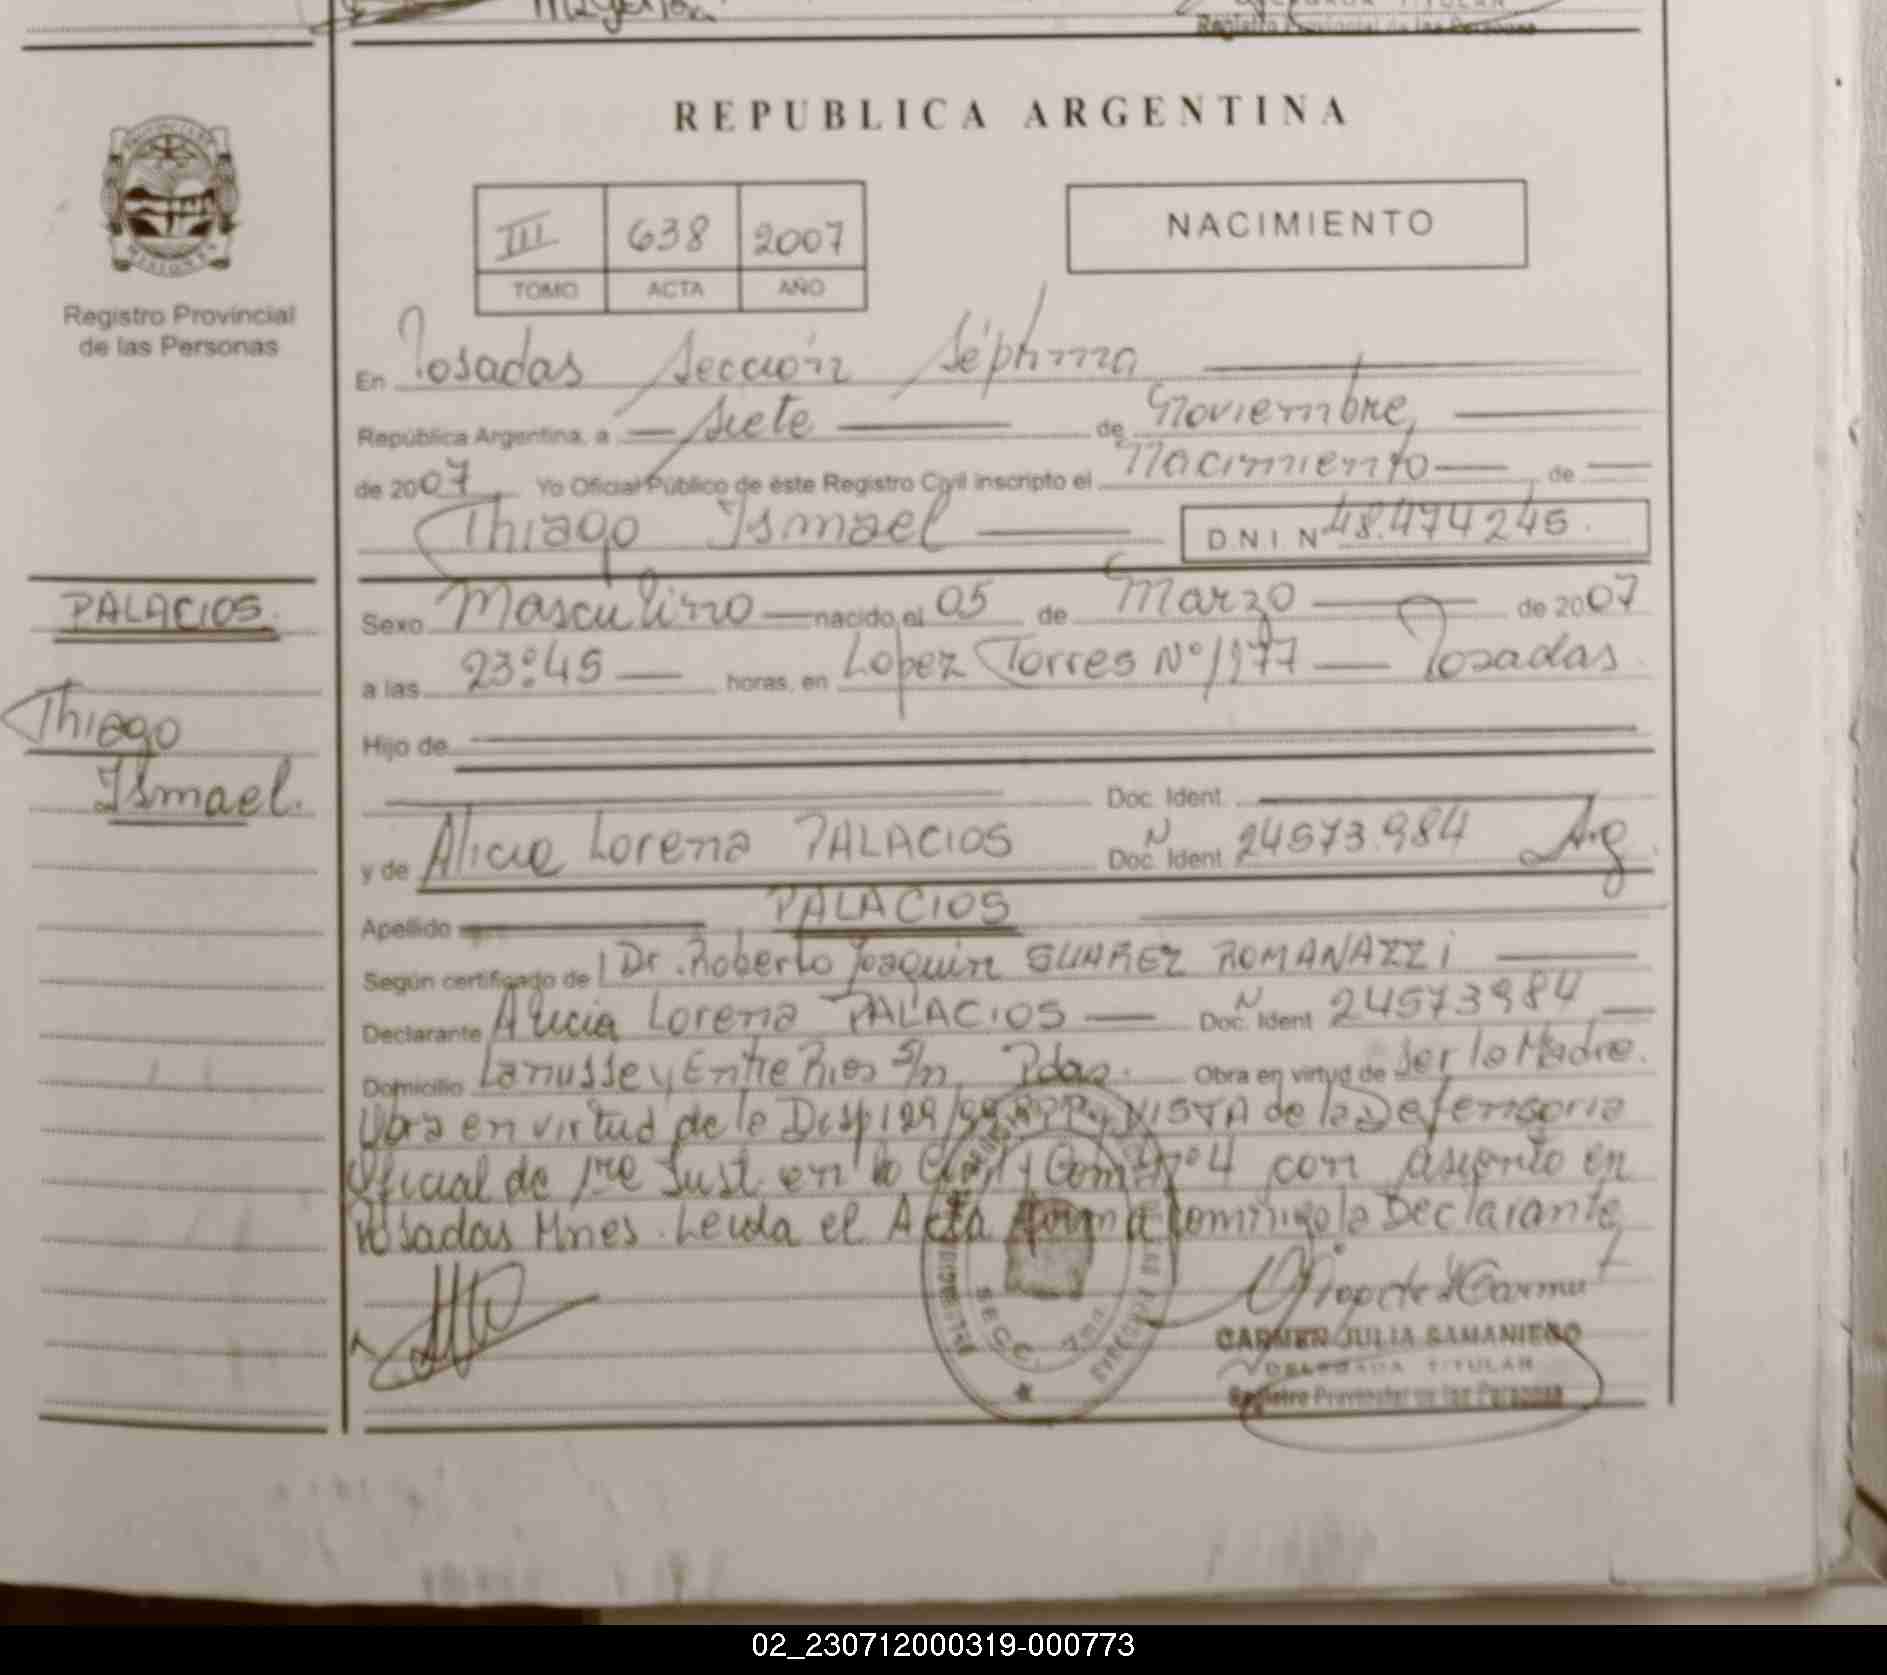 Registro Provincial de las Personas
REPUBLICA ARGENTINA
MISIONES
Registro Provincial
de las Personas
III 638 2007
TOMO ACTA AÑO
NACIMIENTO
En Posadas Sección Séptima
República Argentina, a siete de Noviembre,
de 2007 Yo Oficial Público de este Registro Civil inscripto el Nacimiento de
Thiago Ismael DNI N 48.474245.
PALACIOS.
Thiago
Ismael.
Sexo Masculino nacido el 05 de Marzo de 2007
a las 23:45 horas, en Lopez Torres Nº 1177 Posadas
Hijo de
Doc. Ident.
y de Alicia Lorena PALACIOS Doc. N Ident 24573.984 Arg
Apellido PALACIOS
Según certificado de Dr. Roberto Joaquin SUAREZ ROMANAZZI
Declarante Alicia Lorena PALACIOS Doc. N Ident 24573984
Domicilio Lanusse y Entre Rios s/n Pdas. Obra en virtud de Ser la Madre.
Obra en virtud de la Disp 129/99 RPP y VISTA de la Defensoria
Oficial de 1re Inst. en lo Civil y Com. nº 4 con asiento en
Posadas Mnes. Leida el Acta firma conmigo la Declarante
SECC. 7ma
CARMEN JULIA SAMANIEGO
DELEGADA TITULAR
Registro Provincial de las Personas
02_230712000319-000773